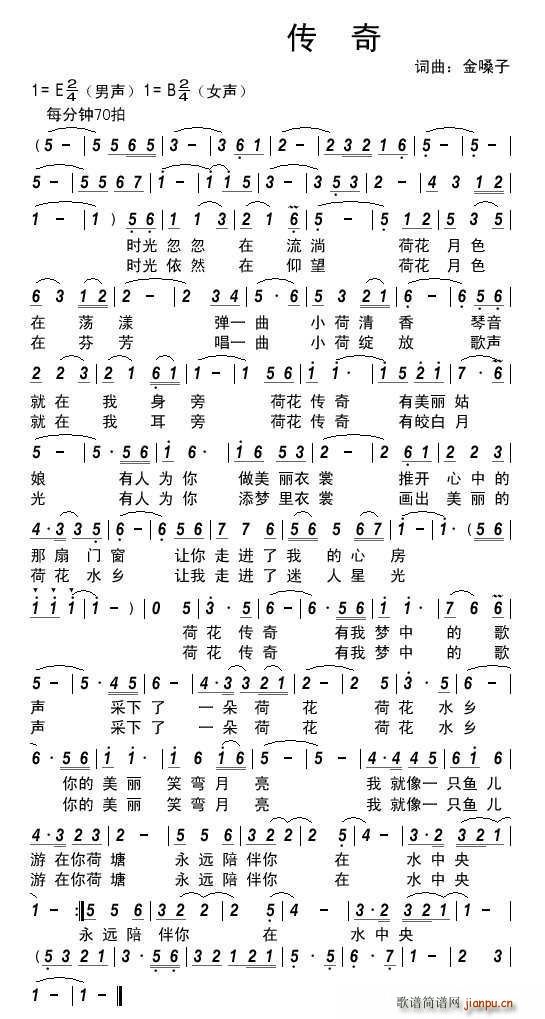 传 奇
词曲：金嗓子
1= E 2/4（男声）1= B 2/4（女声）
每分钟70拍
(5 - | 5 5 6 5 | 3 - | 3 6 1 | 2 - | 2 3 2 1 6 | 5 - | 5 - |
5 - | 5 5 6 7 | 1 - | 1 1 5 | 3 - | 3 5 3 | 2 - | 4 3 1 2 |
1 - | 1 ) 5 6 | 1 1 3 | 2 1 6 | 5 - | 5 1 2 | 5 3 5 |
时光 忽 忽 在 流 淌 荷花 月 色
时光 依 然 在 仰 望 荷花 月 色
6 3 1 2 | 2 - | 2 3 4 | 5 - | 5 3 5 | 2 2 1 | 6 - | 6 5 6 |
在 荡 漾 弹一 曲 小 荷 清 香 琴音
在 芬 芳 唱一 曲 小 荷 绽 放 歌声
2 2 3 | 2 2 6 1 | 1 - | 1 5 6 | 1 1 · | 1 5 2 1 | 7 · 6 |
就 在 我 身 旁 荷花 传 奇 有美丽 姑
就 在 我 耳 旁 荷花 传 奇 有皎白 月
5 - | 5 · 5 6 | 1 6 · | 1 6 5 3 | 2 - | 2 6 1 | 2 1 2 |
娘 有人 为 你 做美丽衣 裳 推开 心 中 的
光 有人 为 你 添梦里衣 裳 画出 美 丽 的
4 · 3 3 5 | 6 - | 6 5 6 | 7 7 6 | 5 6 5 6 7 | 1 - | 1 · (5 6 |
那 扇 门 窗 让你 走 进 了 我 的 心 房
荷 花 水 乡 让我 走 进 了 迷 人 星 光
1 1 1 | 1 - ) | 0 5 | 3 · 5 | 6 - | 6 · 5 6 | 1 1 · | 7 6 6 |
荷 花 传 奇 有我 梦 中 的 歌
荷 花 传 奇 有我 梦 中 的 歌
5 - | 5 · 5 | 5 - | 6 - | 4 · 3 3 2 1 | 2 - | 2 5 | 3 · 5 |
声 采下 了 一 朵 荷 花 荷 花 水 乡
声 采下 了 一 朵 荷 花 荷 花 水 乡
6 · 5 6 | 1 1 · | 1 6 6 1 | 5 - | 5 - | 4 · 4 4 5 | 6 1 6 |
你的 美 丽 笑 弯 月 亮 我 就像 一 只鱼 儿
你的 美 丽 笑 弯 月 亮 我 就像 一 只鱼 儿
4 · 3 2 3 | 2 - | 5 5 6 | 3 2 2 | 2 5 | 4 - | 3 · 2 3 2 1 |
游 在你荷 塘 永 远 陪 伴你 在 水 中央
游 在你荷 塘 永 远 陪 伴你 在 水 中央
1 - :‖ 5 5 6 | 3 2 2 | 2 5 | 4 - | 3 · 2 3 2 1 | 1 - |
永 远 陪 伴你 在 水 中央
(5 5 3 5 | 2 3 2 1 5 | 3 - | 2 · 3 | 5 5 3 5 | 2 3 2 1 5 |
1 - | 1 - ‖
歌谱简谱网
jianpu.cn